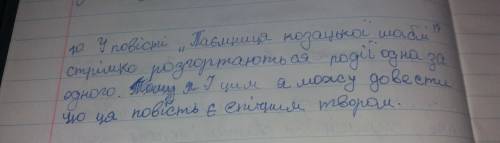 10 У повісті „Таємниця козацької шаблі”
стрімко розгортаються події одна за
одного. І цим я можу довести
що ця повість є епічним твором.